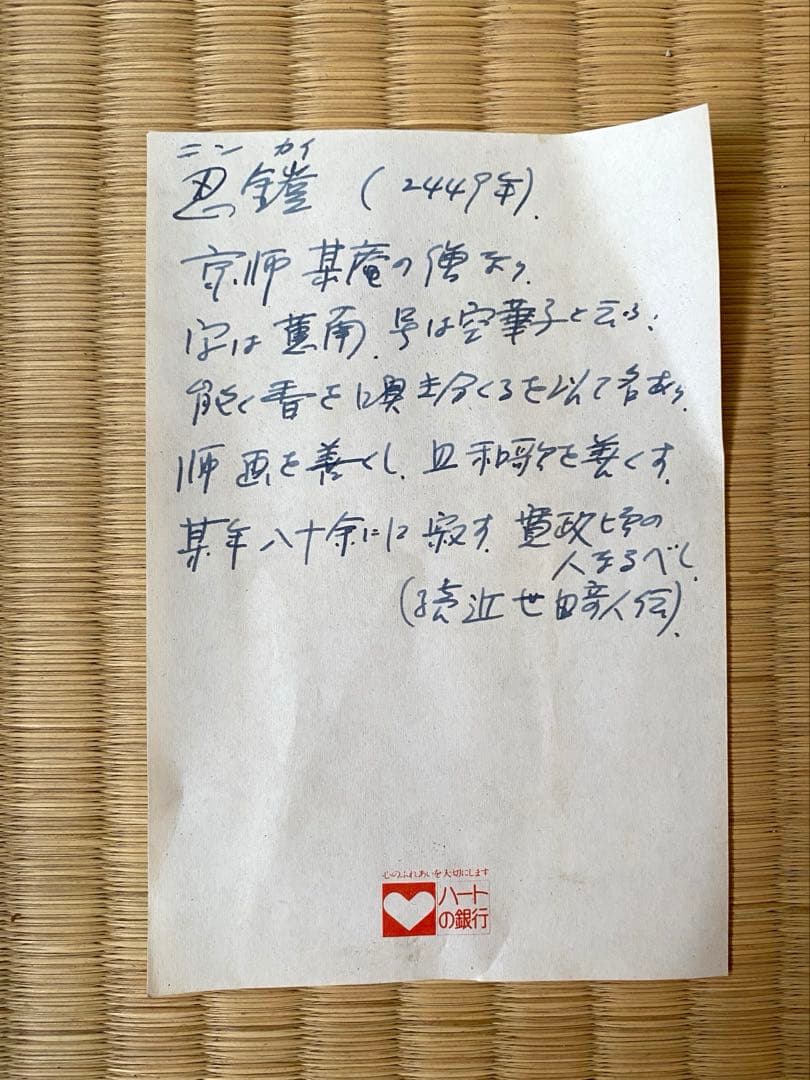 ニン カイ
忍鎧 (2449年).
京師某庵の僧なり.
字は蕙南.号は空華子と云ふ.
能く香を嗅ぎ分くるを以て名あり.
師画を善くし、且和歌を善くす.
某年八十余にに寂す.寛政頃の
人なるべし.
(続近世畸人伝).
心のふれあいを大切にします
ハート
の銀行